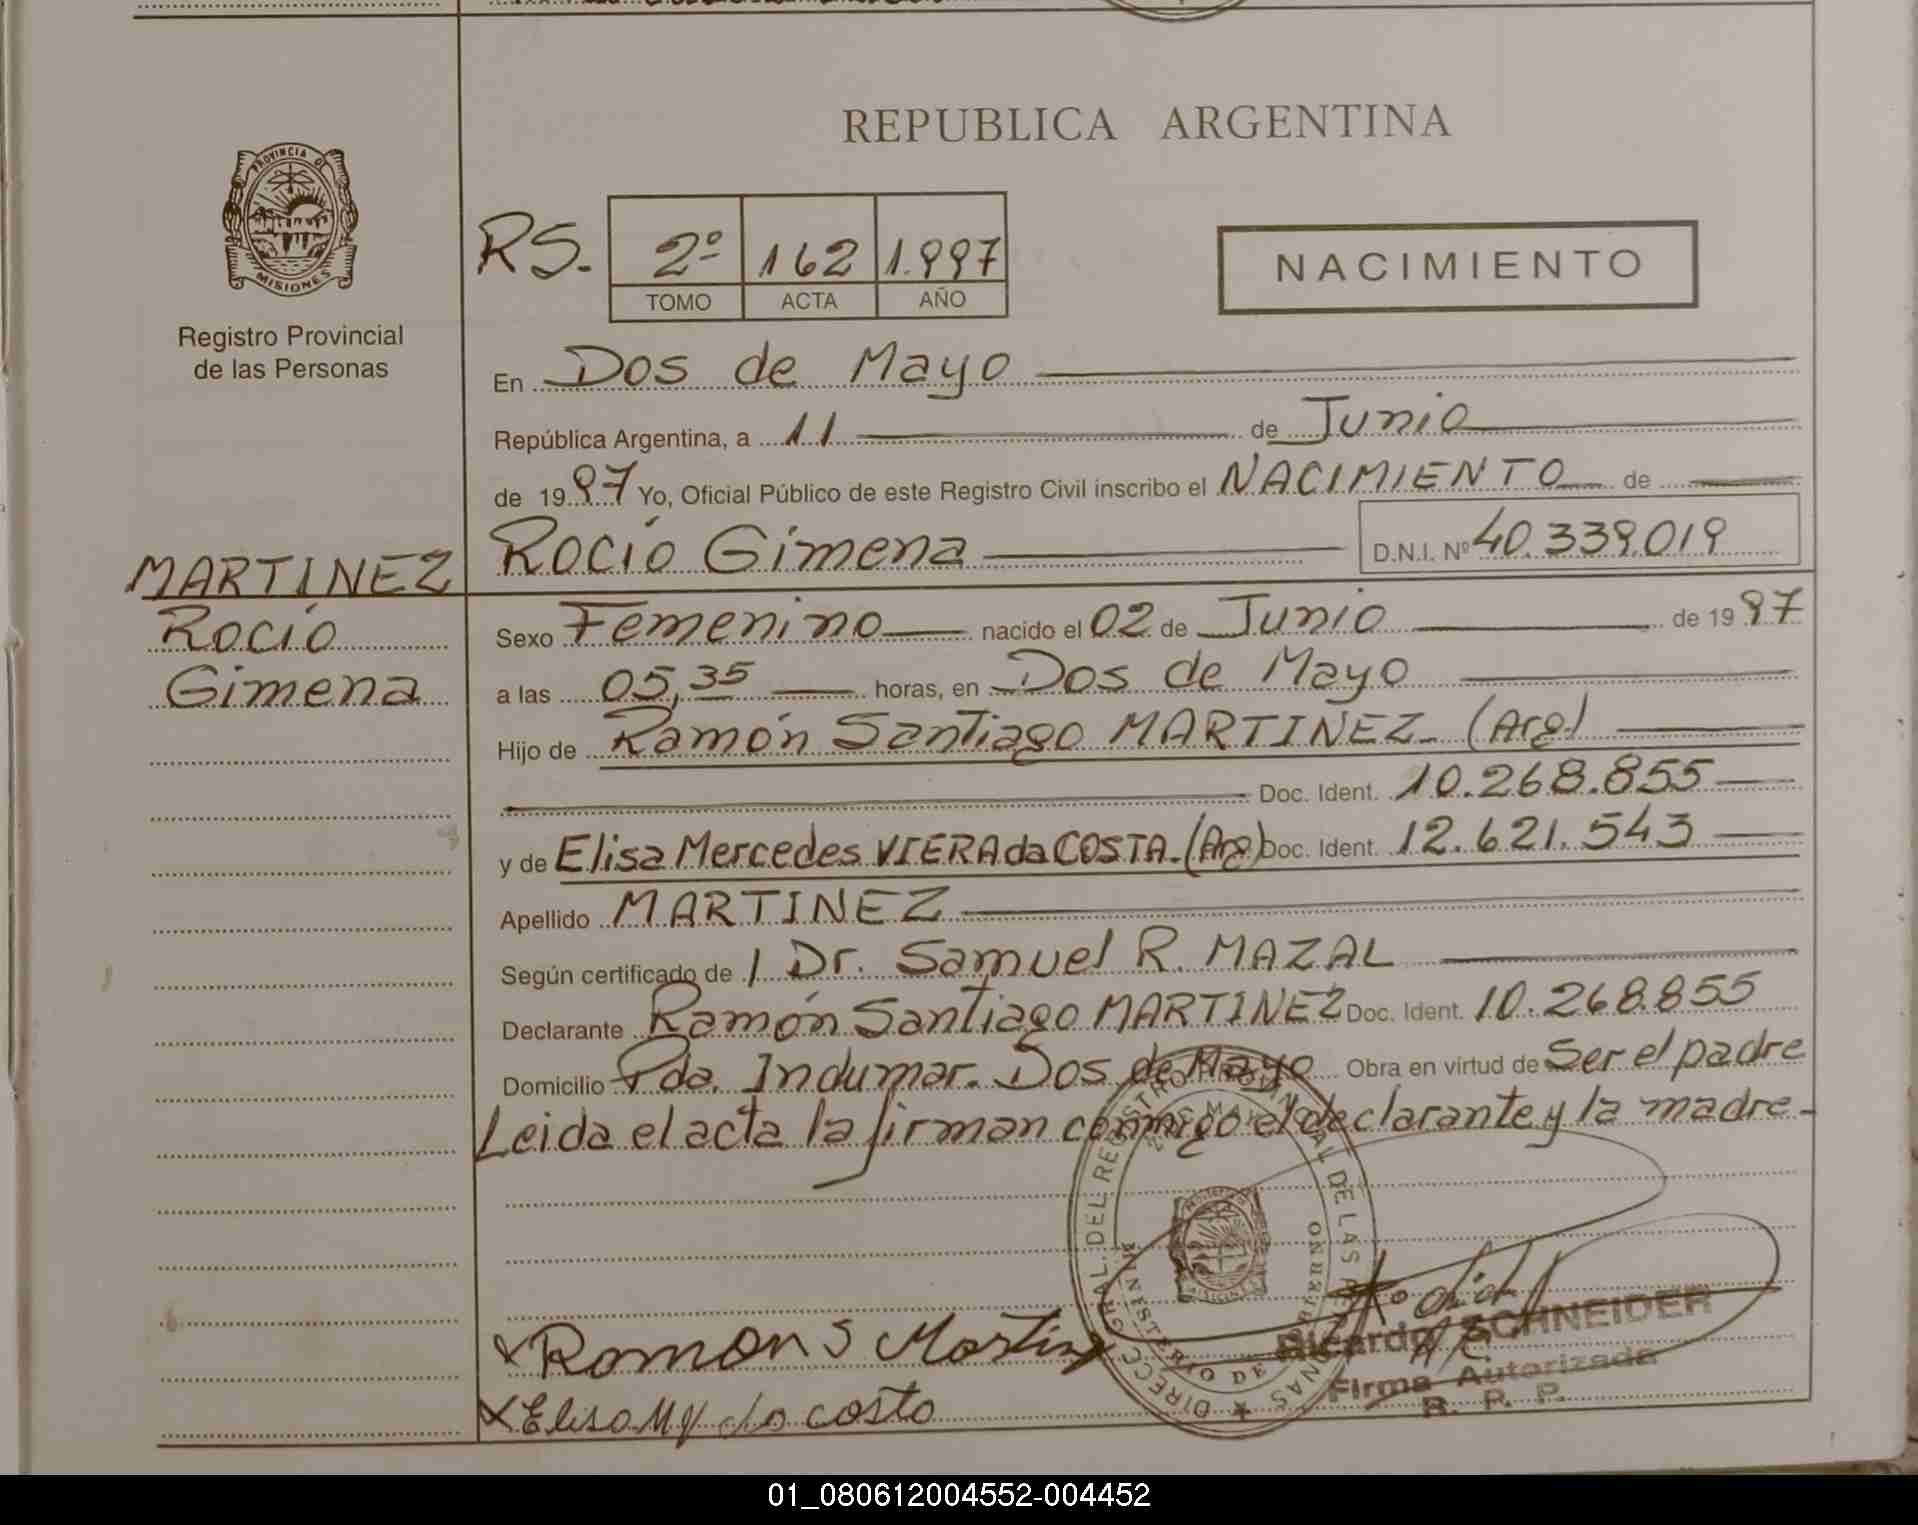 REPUBLICA ARGENTINA
PROVINCIA DE
MISIONES
Registro Provincial
de las Personas
RS.
2º 162 1.997
TOMO ACTA AÑO
NACIMIENTO
En Dos de Mayo
República Argentina, a 11 de Junio
de 1997 Yo, Oficial Público de este Registro Civil inscribo el NACIMIENTO de
Rocío Gimena D.N.I. Nº 40.339.019
MARTINEZ
Rocío
Gimena
Sexo Femenino nacido el 02 de Junio de 1997
a las 05,35 horas, en Dos de Mayo
Hijo de Ramón Santiago MARTINEZ (Arg)
Doc. Ident. 10.268.855
y de Elisa Mercedes VIERA da COSTA.(Arg) Doc. Ident. 12.621.543
Apellido MARTINEZ
Según certificado de Dr. Samuel R. MAZAL
Declarante Ramón Santiago MARTINEZ Doc. Ident. 10.268.855
Domicilio Pda. Indumar. Dos de Mayo Obra en virtud de Ser el padre
Leida el acta la firman conmigo el declarante y la madre.
DIRECC. GRAL. DEL REGISTRO PROVINCIAL DE LAS PERSONAS
MINISTERIO DE GOBIERNO
Ramon S Martinez
Elisa M V da costa
Ricardo SCHNEIDER
Firma Autorizada
R. P. P.
01_080612004552-004452